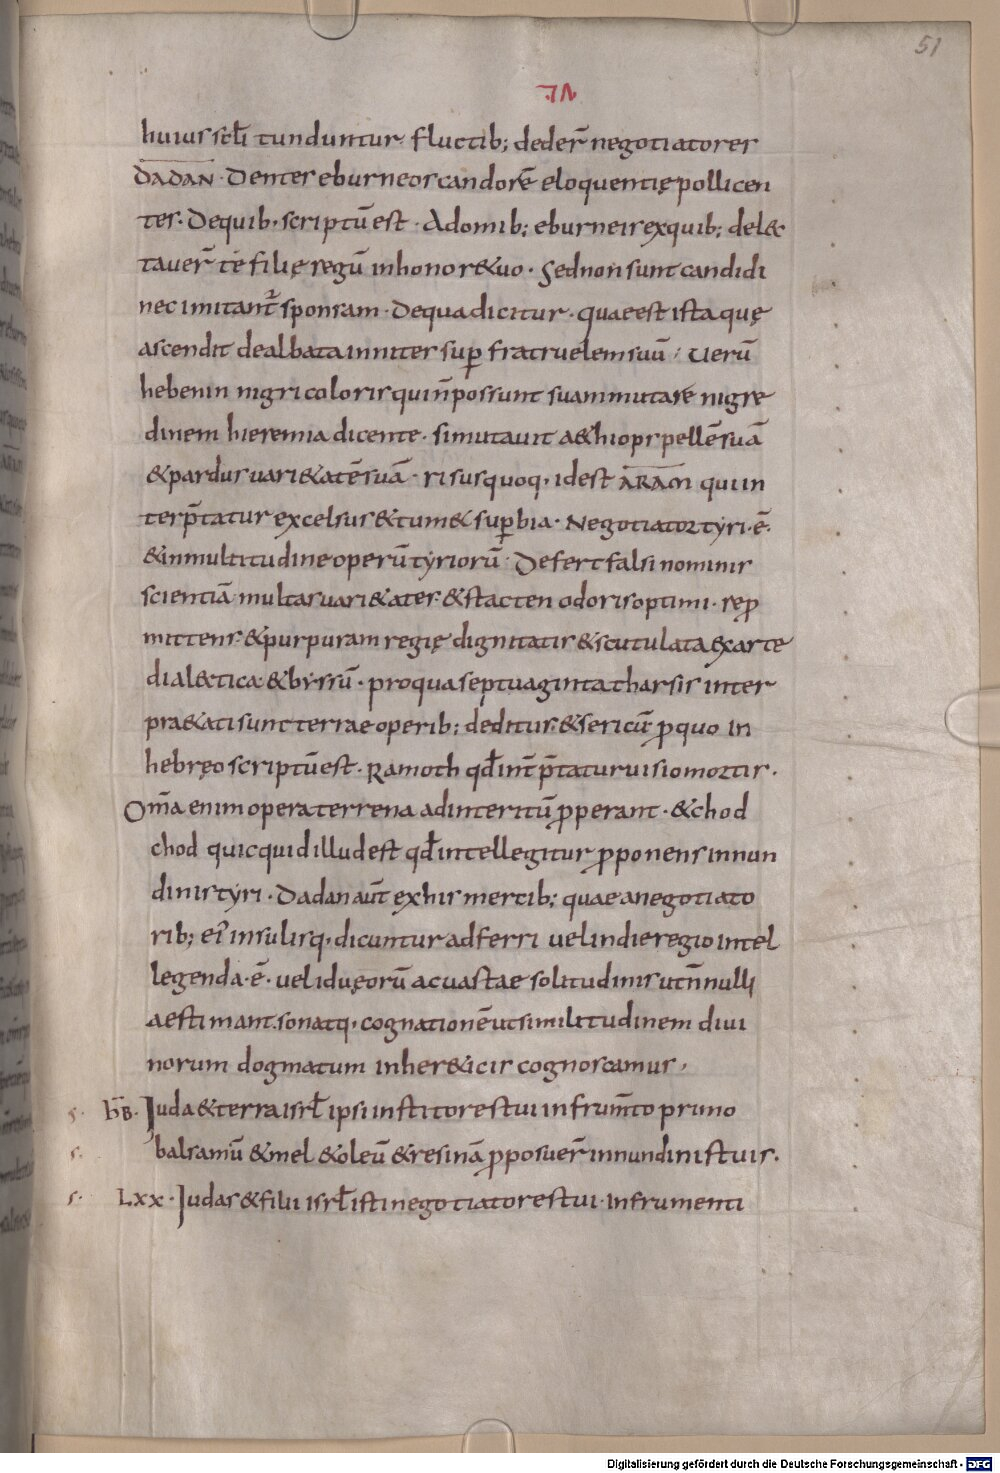 51
huius scłi tunduntur fluctib; dedeř negotiatores
DADAN · Dentes eburneos candorē eloquentię pollicen
tes · De quib· scriptū est · A domib; eburneis exquib; del&
taueř te filię regū in honor& uo · Sed non sunt candidi
nec imitant̃ sponsam · De qua dicitur · quae est ista quę
ascendit dealbata inniter suꝑ fratruelem suū · Uerū
hebenin nigri coloris qui n̄ possunt suam mutare nigre
dinem hieremia dicente · si mutauit a&hiops pellē suā
& pardus uari&atē suā · risus quoq· id est ARAM qui in
terp̄tatur excelsus & tum& suꝑbia · Negotiator tyri · ē ·
& in multitudine operū tyriorū · Defert falsi nominis
scientiā multas uari&ates · & stacten odoris optimi · re ꝓ
mittens · & purpuram regię dignitatis & scutulata ex arte
dial&tica & byssū · pro qua septuaginta tharsis inter
pra&ati sunt terrae operib; deditus · & sericū ꝓ quo in
hebręo scriptū est · Ramoth qđ int̄p̄tatur uisio mortis ·
Om̄a enim opera terrena ad interitū ꝓperant · & chod
chod quicquid illud est qđ intellegitur ꝓponens in nun
dinis tyri · Dadan aūt ex his mercib; quae a negotiato
rib; ei' insulisq· dicuntur adferri uel indie regio intel
legenda · ē · uel iduęorū ac uastae solitudinis ut n̄ nulli
aestimant · sonatq· cognationē ut similitudinem diui
norum dogmatum in her&icis cognoscamus ·
s · h̄B · Iuda & terra isrł ipsi institores tui in frum̄to primo
s · balsamū & mel & oleū & resinā ꝓposueř in nundinis tuis ·
s · LXX · Iudas & filii isrł isti negotiatores tui · In frumenti
Digitalisierung gefördert durch die Deutsche Forschungsgemeinschaft - DFG